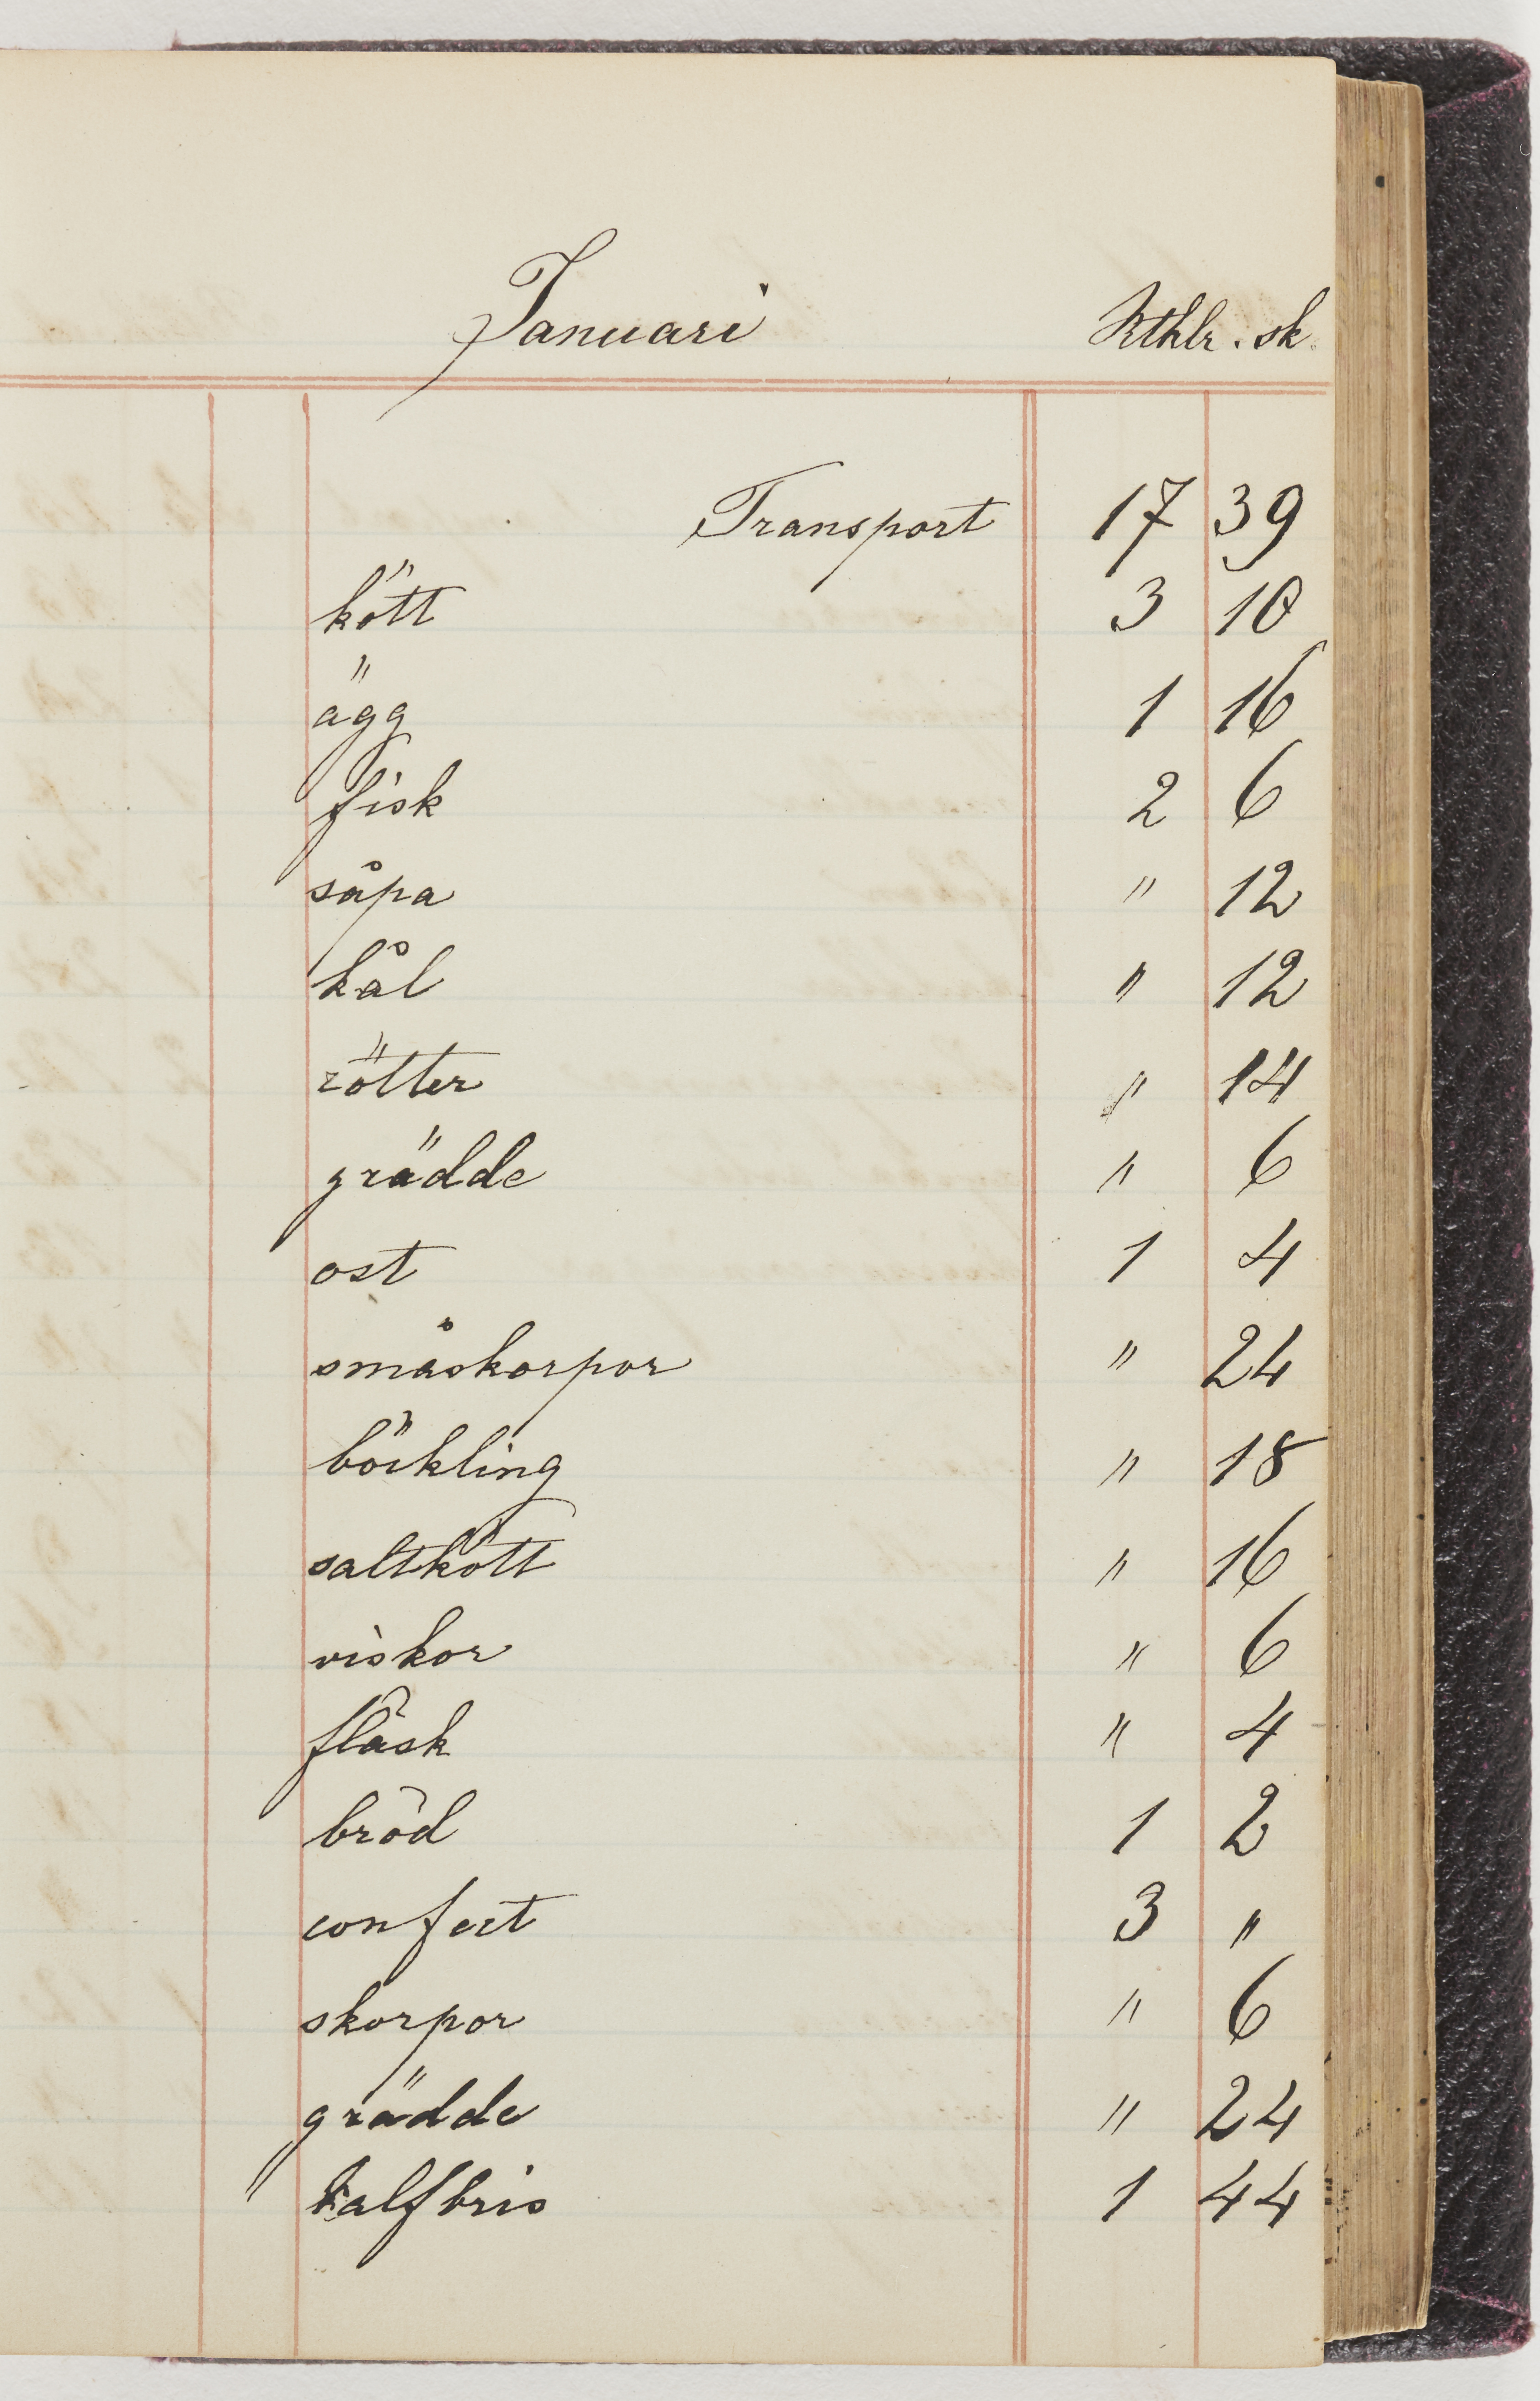 Januari Rthlr. sk.
Transport 17 39
kött 3 10
ägg 1 16
fisk 2 6
såpa " 12
kål " 12
rötter " 14
grädde " 6
ost 1 4
småskorpor " 24
böckling " 18
saltkött " 16
viskor " 6
fläsk " 4
bröd 1 2
confect 3 "
skorpor " 6
grädde " 24
kalfbris 1 44